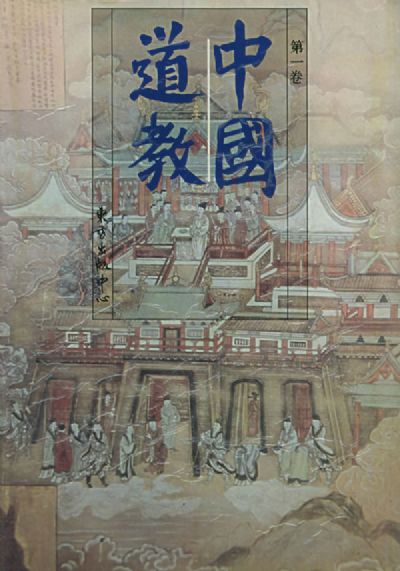 第一卷
中國
道教
東方出版中心